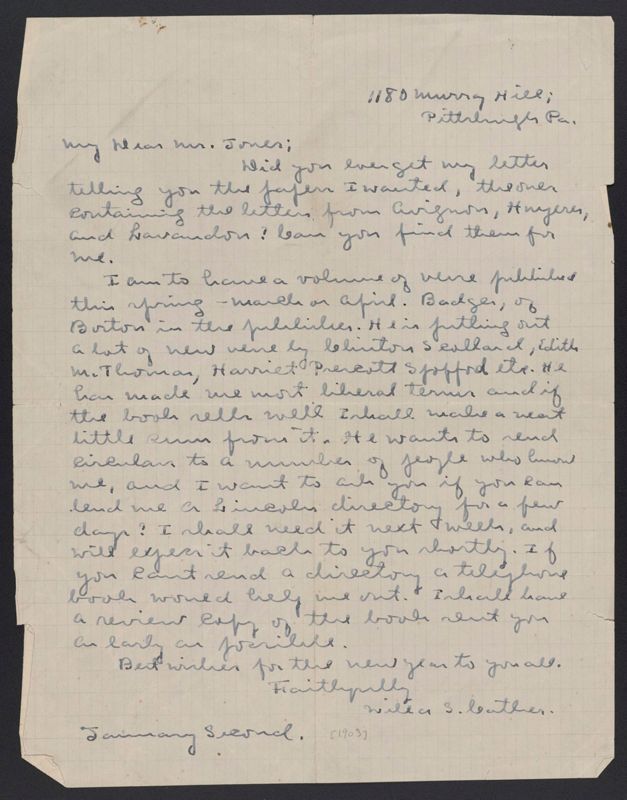 1180 Murray Hill;
Pittsburgh Pa.
My Dear Mr. Jones;
Did you ever get my letter
telling you the papers I wanted, the ones
containing the letters from Avignon, Hnyeres,
and Lavandou? Can you find them for
me.
I am to have a volume of verse published
this spring - March or April. Badger, of
Boston is the publisher. He is putting out
a lot of new verse by Clinton Scollard, Edith
M. Thomas, Harriet Prescott Spofford etc. He
has made me most liberal terms and if
the book sells well I shall make a neat
little sum from it. He wants to send
circulars to a number of people who know
me, and I want to ask you if you can
lend me a Lincoln directory for a few
days? I shall need it next week, and
will expect it back to you shortly. If
you cant send a directory a telephone
book would help me out. I shall have
a review copy of the book sent you
as early as possible.
Best wishes for the new year to you all.
Faithfully
Willa S. Cather.
January Second. [1903]